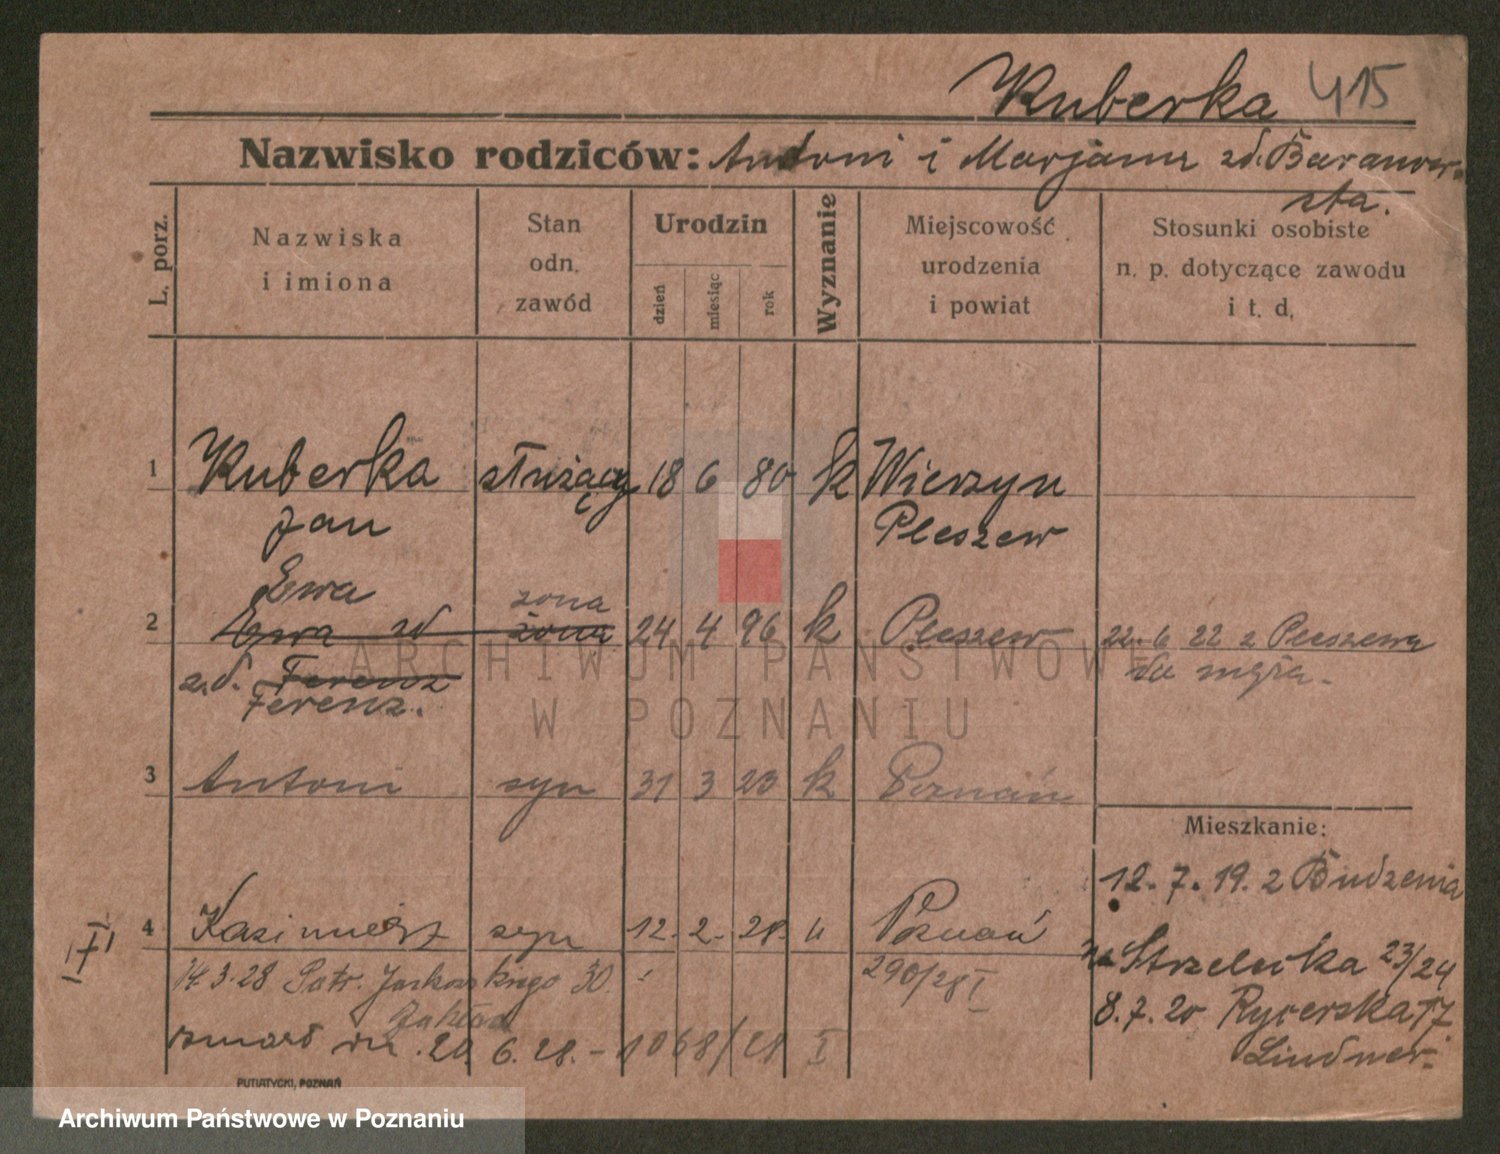 Kuberka 415
Nazwisko rodziców: Antoni i Marjanna zd. Baranow-
ska.
L. porz.
Nazwiska
i imiona
Stan
odn.
zawód
Urodzin
dzień
miesiąc
rok
Wyznanie
Miejscowość
urodzenia
i powiat
Stosunki osobiste
n. p. dotyczące zawodu
i t. d.
1 Kuberka służący 18 6 80 k Wierzyn
Jan Pleszew
Ewa żona
2 Ewa zd żona 24 4 96 k Pleszew 22. 6 22 z Pleszewa
z d. Ferenz do męża.
Ferenz.
3 Antoni syn 31 3 23 k Poznań
Mieszkanie:
12. 7. 19. z Budzenia
4 Kazimierz syn 12. 2. 28. " Poznań
na Strzelecka 23/24
14.3.28 Patr. Jackowskiego 30. 290/28 I
Zakład
8.7.20 Rycerska 17
zmarł dn. 20. 6. 28. - 1068/28 I
Lindner
PUTIATYCKI, POZNAŃ
ARCHIWUM PAŃSTWOWE
W POZNANIU
Archiwum Państwowe w Poznaniu